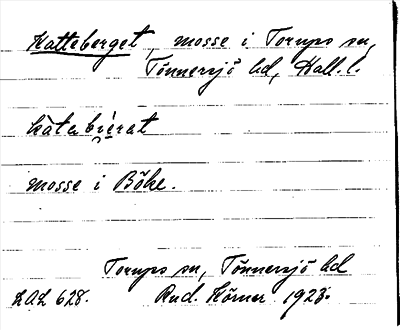 Katteberget, mosse i Torups sn,
Tönnersjö hd, Hall. l.
kàtabie�loc̀rat
mosse i Böke.
Torups sn, Tönnersjö hd
LAL 628. Rud. Körner 1923.